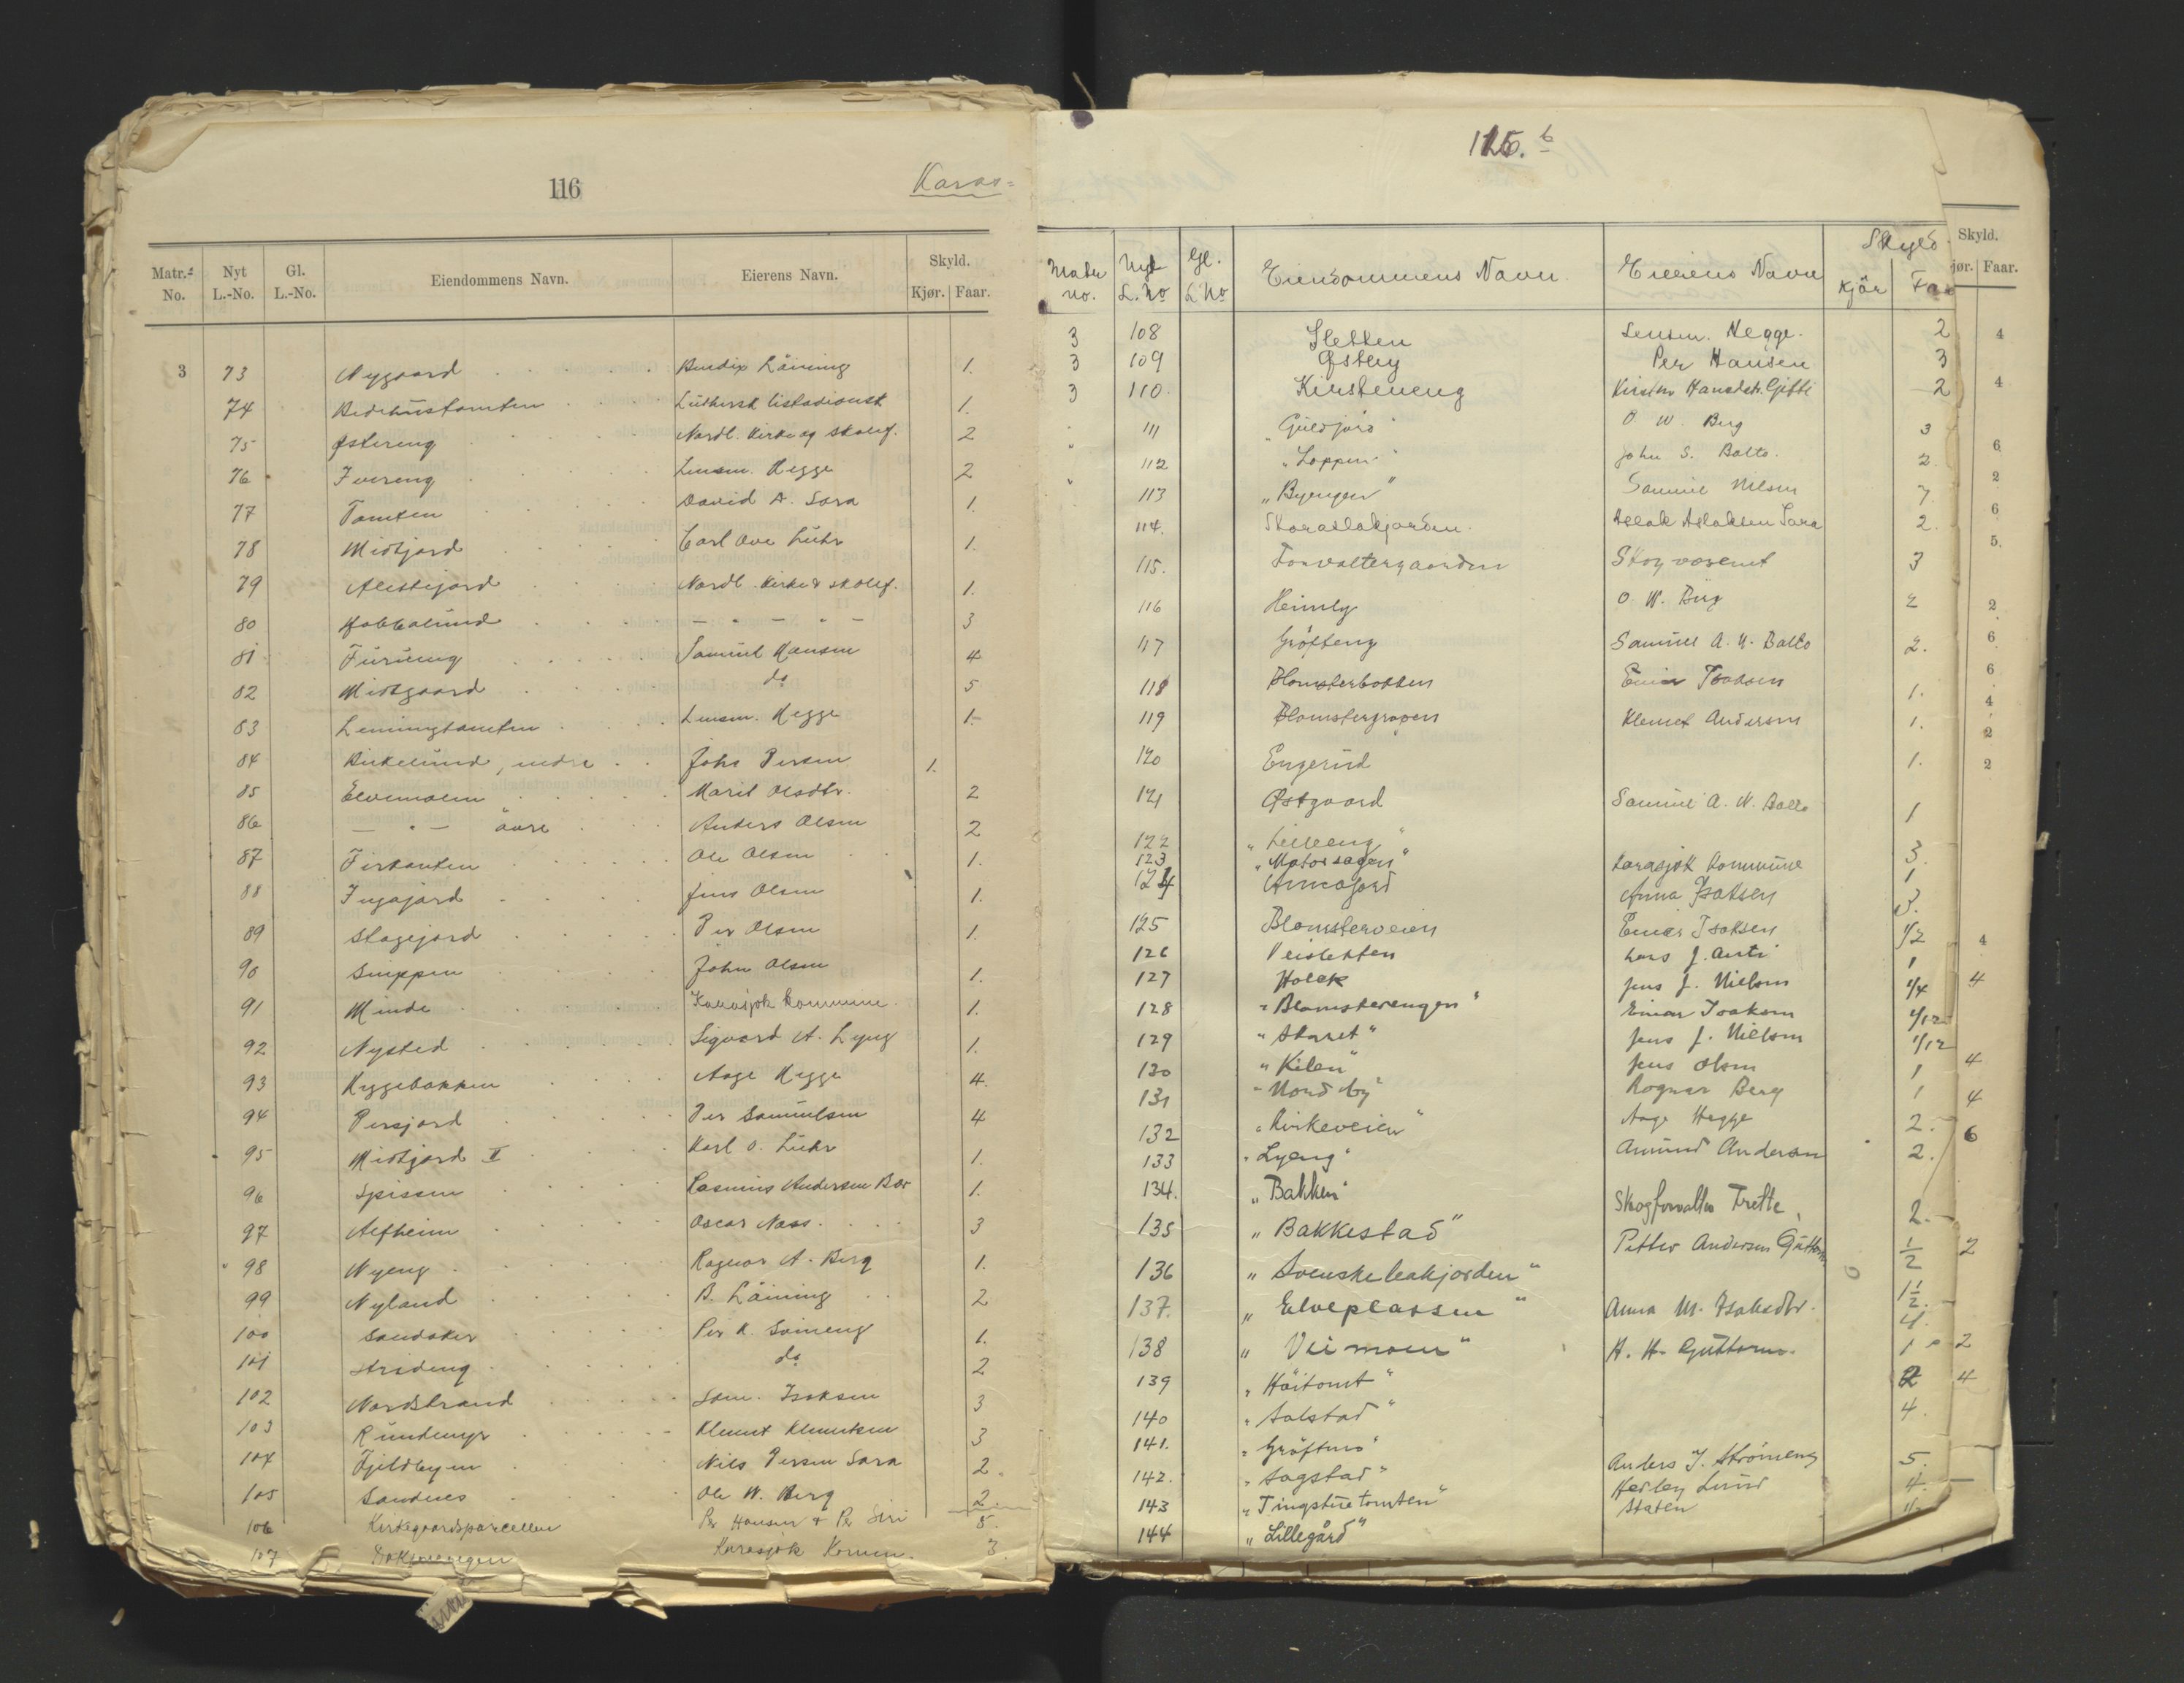 116
Karas=
Matr.-No. Nyt L.-No. Gl. L.-No. Eiendommens Navn. Eierens Navn. Skyld. Kjør. Faar.
3 73 Nygaard Bendix Läining 1.
74 Bedehustomten Luthersk listadionsk 1.
75 Østereng Nordl. Kirke og skolef. 2
76 Ivereng Lensm. Hegge 2
77 Tomten David A. Sara 1.
78 Midtjord Carl Ove Luhr 1.
79 Alettejord Nordl. Kirke & skolef. 1.
80 Habbalund — " — " — 3
81 Furueng Samuel Hansen 4
82 Midtgaard do 5
83 Lenningtomten Lensm. Hegge 1.
84 Birkelund, nedre John Persen 1.
85 Elvemalen Marit Olsdtr. 2
86 — " — övre Anders Olsen 2
87 Firkanten Ole Olsen 1.
88 Ingajord Jens Olsen 1.
89 Stagejord Per Olsen 1.
90 Snippen John Olsen 1.
91 Minde Karasjok kommune. 1.
92 Nysted Sigvard A. Lyng 1.
93 Hyggebakken Aage Hegge 4.
94 Persjord Per Samuelsen 4
95 Midtjord II Karl O. Luhr 1.
96 Spissen Rasmus Andersen Bær 1.
97 Alfheim Oscar Næss. 3
98 Nyeng Ragnar A. Berg 1.
99 Nyland B. Läining 2
100 Sandaker Per K. Someng 1.
101 Arideng do 2
102 Nordstrand Sam. Isaksen 3
103 Rundemyr Klemet Klemetsen 3
104 Fjeldbyen Nils Persen Sara 2.
105 Sandnes Ole W. Berg 2
106 Kirkegaardsparcellen Per Hansen & Per Siri 5.
107 Karasjok Komm. 3.
115. b
Matr no. Nyt L. No Gl. L No Eiendommens Navn. Eierens Navn Skyld Kjör
3 108 Sletten Lensm. Hegge. 2
3 109 Østby Per Hansen 3
3 110. Kirsteneng Kirsten Hansdtr. Gitti 2
" 111 "Guldjord" O. W. Berg 3
" 112 "Loppen" John S. Balto. 2.
" 113 "Byengen" Samuel Nilsen 7
114. Storaslakjorden. Aslak Aslaksen Sara 2.
115. Forvaltergaarden Skogvæsenet 3
116 Heimly O. W. Berg 2
117 Gröfteng Samuel A. N. Balto 2.
118 Blomsterbotten Einar Isaksen 1.
119 Blomstergropen Klemet Andersen 1.
120 Engerud 1.
121 Østgaard Samuel A. N. Balto 1
122 "Lilleeng"
123 "Motorsagen" Karasjok Kommune 3.
124 Annajord Anna Isaksen 3.
125 Blomsterveien Einar Isaksen 1/2
126 Veisletten Lars J. Anti 1
127 Holek Jens J. Nielsen 1/4
128 "Blomsterengen" Einar Isaksen 1/12
129 "Skaret" Jens J. Nielsen 1/12
130 "Kilen" Jens Olsen 1
131 "Nordby" Ragnar Berg 1
132 "Kirkeveien" Aage Hegge 2.
133 "Lyeng" Amund Andersen 2.
134. "Bakken" Skogforvalter Frette 2.
135 "Bakkestad" Petter Andersen Guttorm 1/2
136 "Svenskebakjorden" 1 1/2
137. "Elveplassen" Anna M. Isaksdtr. 4.
138 "Veimoen" H. H. Guttorm. 1
139 "Höitomt" 2
140 "Solstad" 4.
141. "Gröftmo"
142. "Sagstad" Anders J. Strömeng 5.
143 "Tingstuetomten" Hedley Lund 4.
144 "Lillegård" Staten
Skyld.
Faar.
4
4
6
2
6
5.
2
6
6
4
2
2
4
4
4
4
6
2
2
4